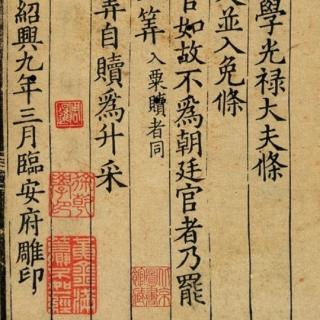 學光禄大夫條
並入免條
官如故不爲朝廷官者乃罷
筭入粟贖者同
弄自贖爲升采
紹興九年三月臨安府雕印